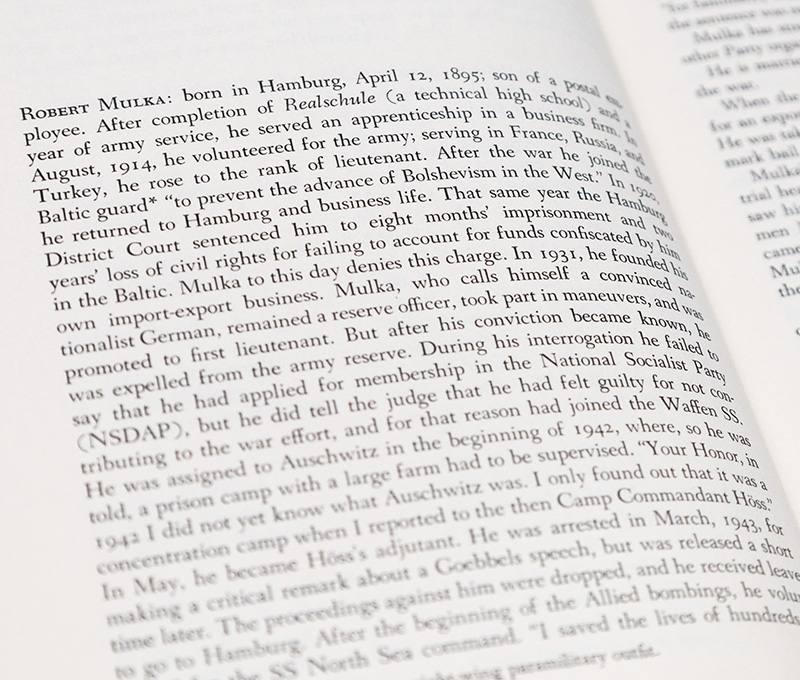 ROBERT MULKA: born in Hamburg, April 12, 1895; son of a postal em-
ployee. After completion of Realschule (a technical high school) and a
year of army service, he served an apprenticeship in a business firm. In
August, 1914, he volunteered for the army; serving in France, Russia, and
Turkey, he rose to the rank of lieutenant. After the war he joined the
Baltic guard* “to prevent the advance of Bolshevism in the West.” In 1920,
he returned to Hamburg and business life. That same year the Hamburg
District Court sentenced him to eight months’ imprisonment and two
years’ loss of civil rights for failing to account for funds confiscated by him
in the Baltic. Mulka to this day denies this charge. In 1931, he founded his
own import-export business. Mulka, who calls himself a convinced na-
tionalist German, remained a reserve officer, took part in maneuvers, and was
promoted to first lieutenant. But after his conviction became known, he
was expelled from the army reserve. During his interrogation he failed to
say that he had applied for membership in the National Socialist Party
(NSDAP), but he did tell the judge that he had felt guilty for not con-
tributing to the war effort, and for that reason had joined the Waffen SS.
He was assigned to Auschwitz in the beginning of 1942, where, so he was
told, a prison camp with a large farm had to be supervised. “Your Honor, in
1942 I did not yet know what Auschwitz was. I only found out that it was a
concentration camp when I reported to the then Camp Commandant Höss.”
In May, he became Höss’s adjutant. He was arrested in March, 1943, for
making a critical remark about a Goebbels speech, but was released a short
time later. The proceedings against him were dropped, and he received leave
to go to Hamburg. After the beginning of the Allied bombings, he volu
the SS North Sea command. “I saved the lives of hundreds
wing paramilitary outfit.
the sentence was
Mulka has
other Party
He is
the war.
When the
for an
He was
mark bail
Mulka
trial
saw his
men
came
Mul
the